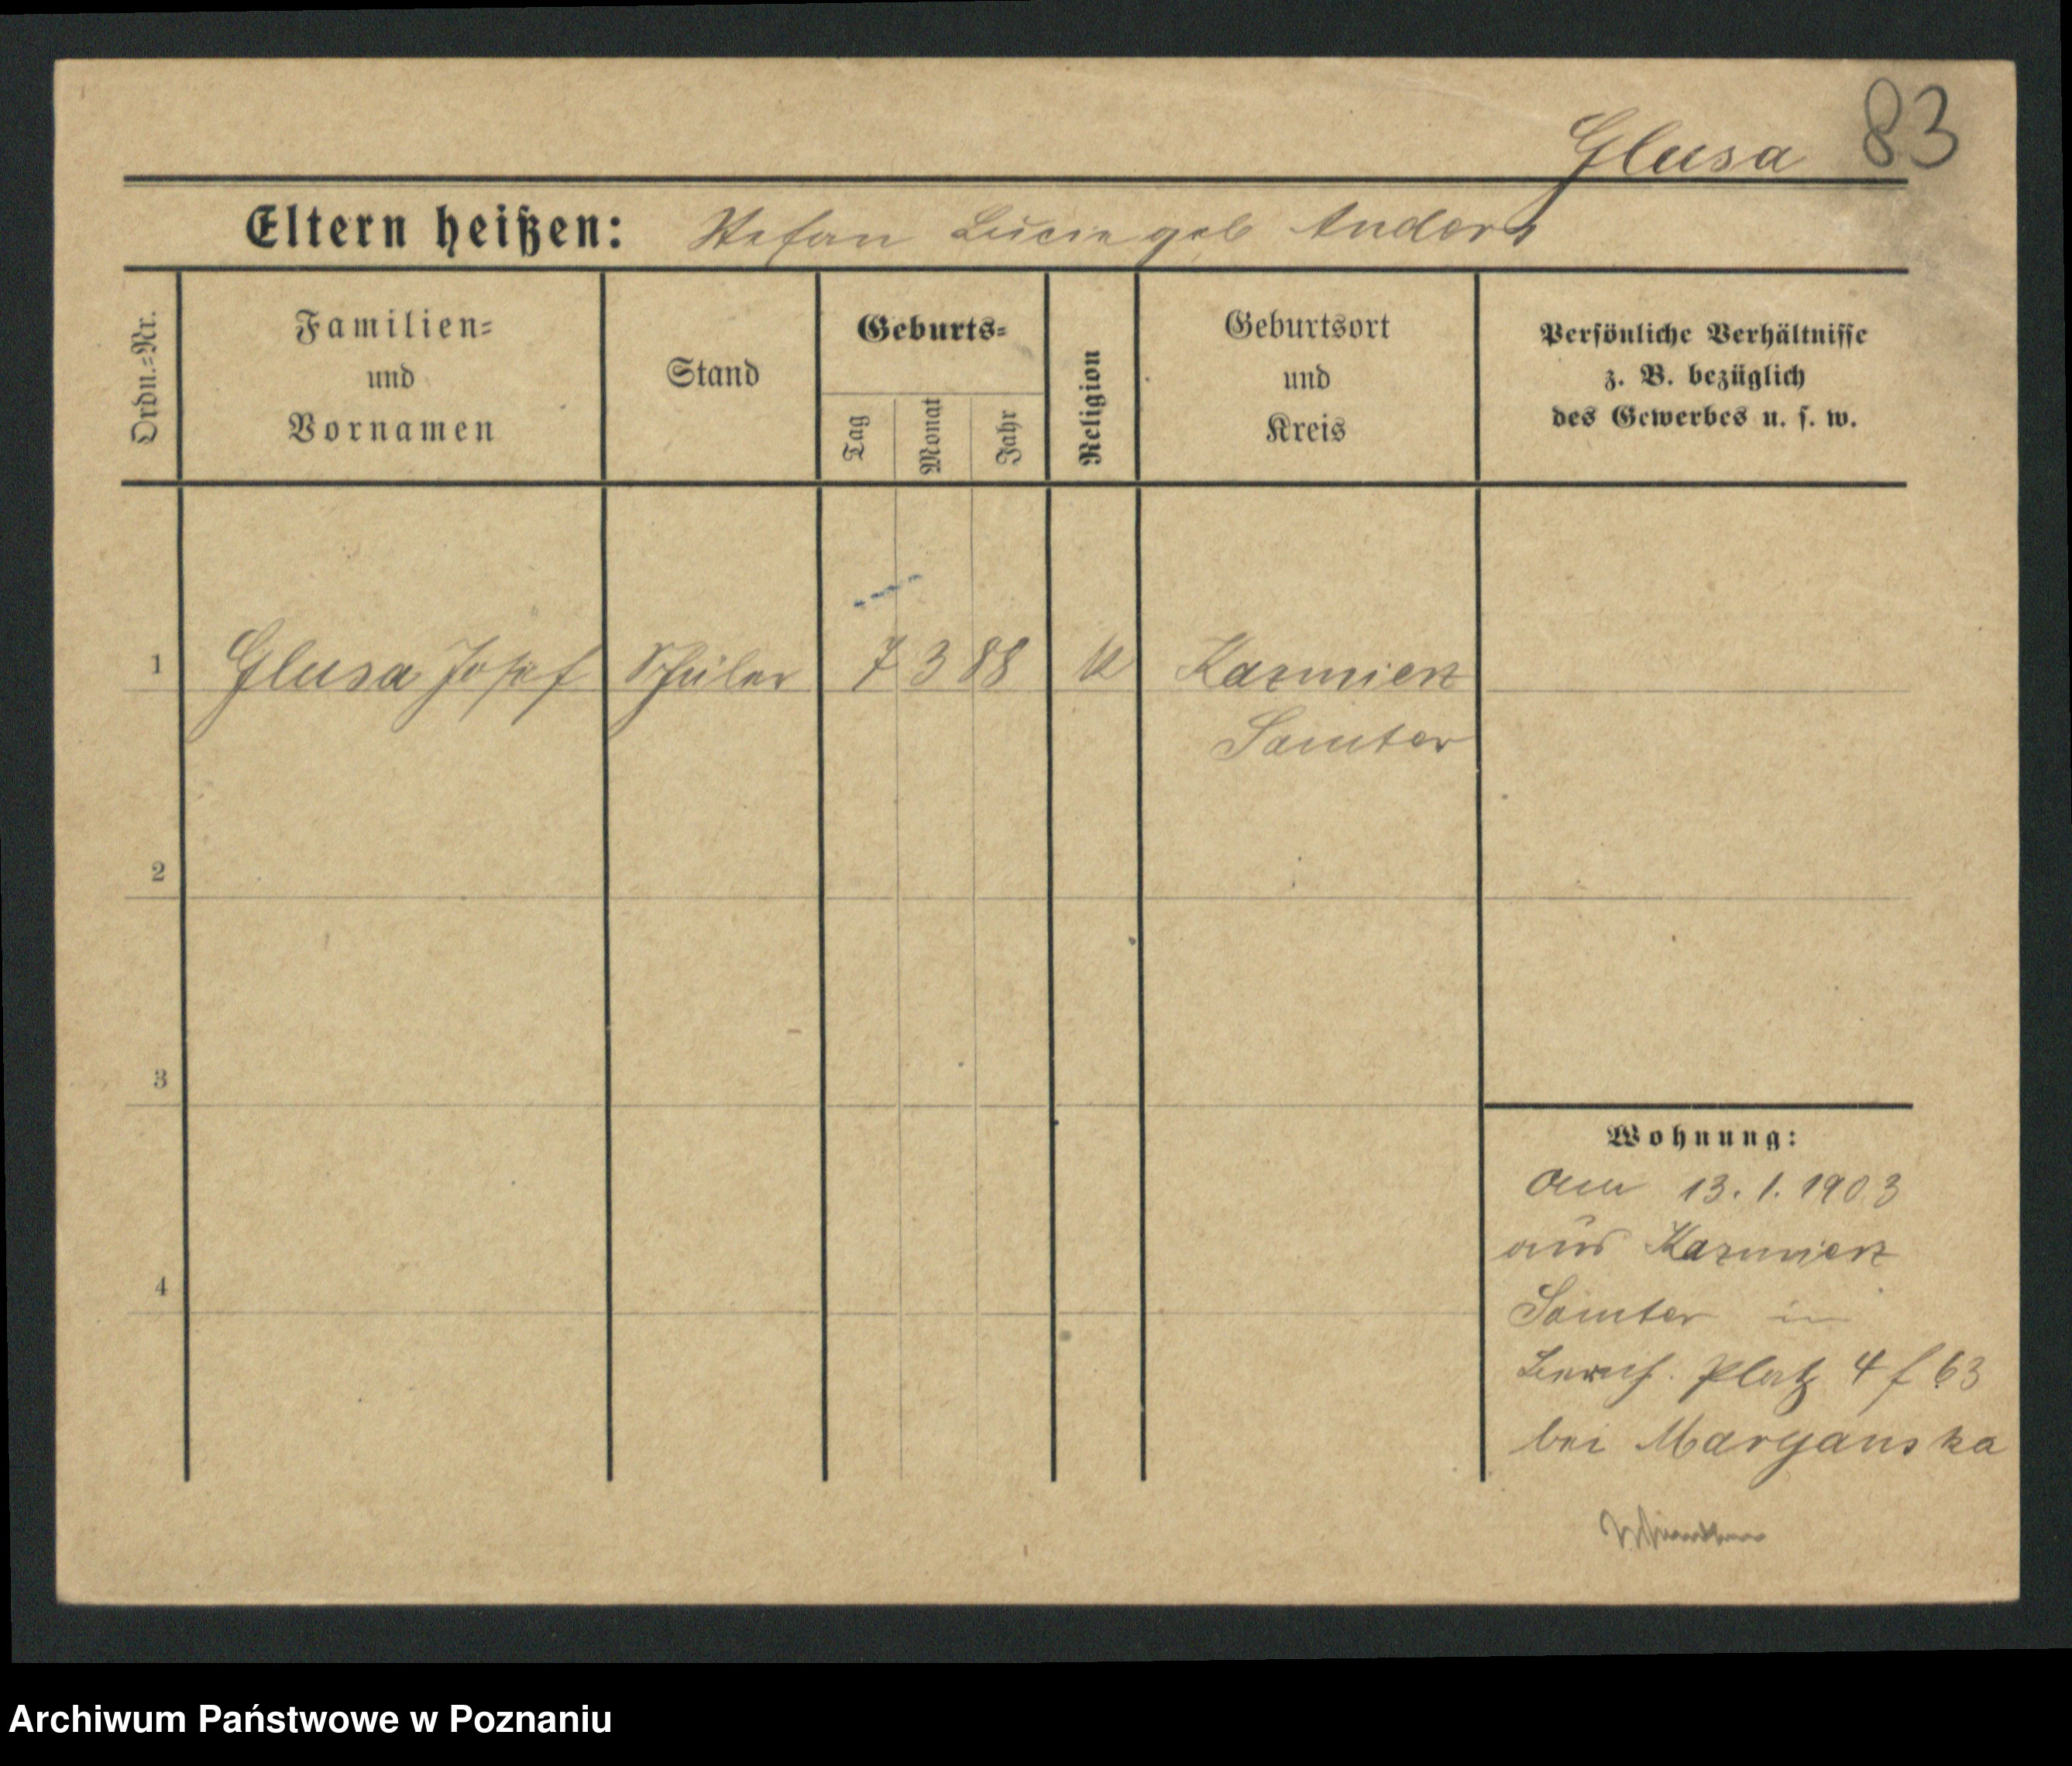 83
Glusa
Eltern heißen: Stefan Lucie geb Anders
Ordn.=Nr.
Familien=
und
Vornamen
Stand
Geburts=
Tag
Monat
Jahr
Religion
Geburtsort
und
Kreis
Persönliche Verhältnisse
z. B. bezüglich
des Gewerbes u. s. w.
1 Glusa Josef Schüler 7 3 88 k Kazmierz
Samter
2
3
4
Wohnung:
Am 13. 1. 1903
aus Kazmierz
Samter in
Platz 4 f 63
bei Maryanska
Archiwum Państwowe w Poznaniu